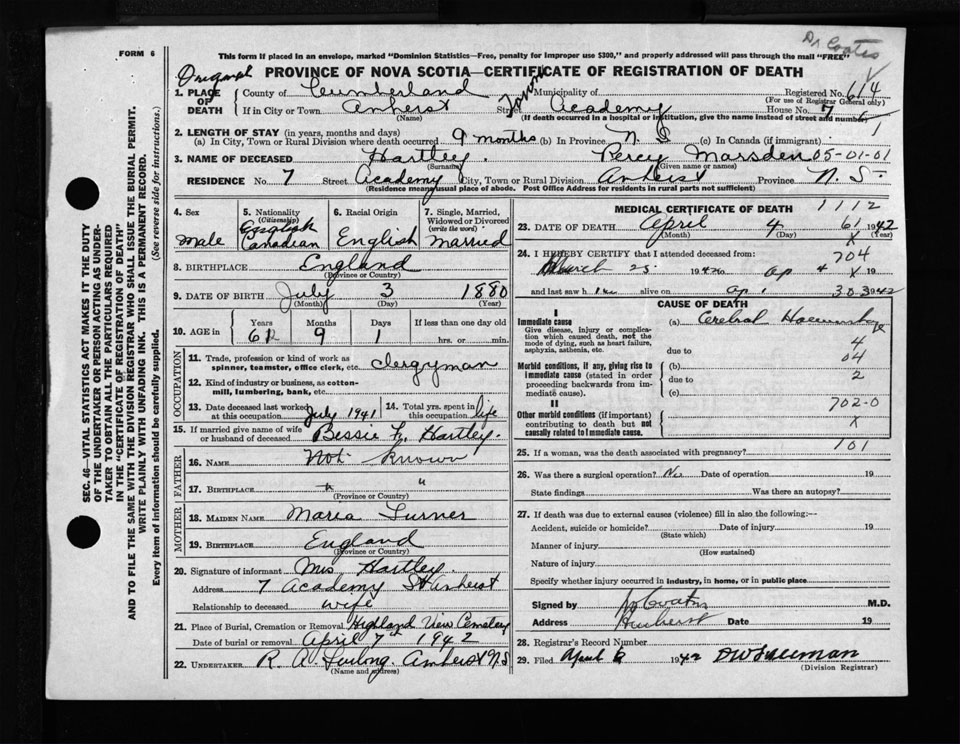 Dr Coates
FORM 6
This form if placed in an envelope, marked "Dominion Statistics—Free, penalty for improper use $300," and properly addressed will pass through the mail "FREE"
PROVINCE OF NOVA SCOTIA—CERTIFICATE OF REGISTRATION OF DEATH
1. PLACE OF DEATH
County of Cumberland Municipality of Registered No. 614
(For use of Registrar General only)
If in City or Town Amherst Street Academy House No. 7
(Name) (If death occurred in a hospital or institution, give the name instead of street and number)
2. LENGTH OF STAY (in years, months and days)
(a) In City, Town or Rural Division where death occurred 9 months (b) In Province N. S (c) In Canada (if immigrant)
3. NAME OF DECEASED Hartley. Percy Marsden 05-01-01
(Surname) (Given name or names)
RESIDENCE No. 7 Street Academy City, Town or Rural Division Amherst Province N. S.
(Residence means usual place of abode. Post Office Address for residents in rural parts not sufficient)
4. Sex
Male
5. Nationality
(Citizenship)
English
Canadian
6. Racial Origin
English
7. Single, Married, Widowed or Divorced
(write the word)
Married
8. BIRTHPLACE England
(Province or Country)
9. DATE OF BIRTH July 3 1880
(Month) (Day) (Year)
10. AGE in Years Months Days If less than one day old
61 9 1 hrs. or min.
OCCUPATION
11. Trade, profession or kind of work as spinner, teamster, office clerk, etc. Clergyman
12. Kind of industry or business, as cotton-mill, lumbering, bank, etc.
13. Date deceased last worked at this occupation July 1941
14. Total yrs. spent in this occupation life
15. If married give name of wife or husband of deceased Bessie H. Hartley.
FATHER
16. NAME Not known
17. BIRTHPLACE " "
(Province or Country)
MOTHER
18. MAIDEN NAME Maria Turner
19. BIRTHPLACE England
(Province or Country)
20. Signature of informant Mrs Hartley.
Address 7 Academy St Amherst
Relationship to deceased wife
21. Place of Burial, Cremation or Removal Highland View Cemetery
Date of burial or removal April 7th 1942
22. UNDERTAKER R. A. Furlong. Amherst N.S
MEDICAL CERTIFICATE OF DEATH 1112
23. DATE OF DEATH April 4 61 1942
(Month) (Day) (Year)
24. I HEREBY CERTIFY that I attended deceased from: 704
March 25 1942 to Ap 4 X 19
and last saw h im alive on Ap. 303 1942
CAUSE OF DEATH
I
Immediate cause
Give disease, injury or complication which caused death, not the mode of dying, such as heart failure, asphyxia, asthenia, etc.
(a) Cerebral
due to 4
04
Morbid conditions, if any, giving rise to immediate cause (stated in order proceeding backwards from immediate cause).
(b)
due to 2
(c)
II
702-0
Other morbid conditions (if important) contributing to death but not causally related to immediate cause.
X
25. If a woman, was the death associated with pregnancy? 101
26. Was there a surgical operation? No Date of operation 19
State findings Was there an autopsy?
27. If death was due to external causes (violence) fill in also the following:—
Accident, suicide or homicide? Date of injury 19
(State which)
Manner of injury
(How sustained)
Nature of injury
Specify whether injury occurred in industry, in home, or in public place
Signed by Coates M.D.
Address Amherst Date 19
28. Registrar's Record Number
29. Filed April 6 1942
(Division Registrar)
SEC. 46—VITAL STATISTICS ACT MAKES IT THE DUTY
OF THE UNDERTAKER OR PERSON ACTING AS UNDER-
TAKER TO OBTAIN ALL THE PARTICULARS REQUIRED
IN THE "CERTIFICATE OF REGISTRATION OF DEATH"
AND TO FILE THE SAME WITH THE DIVISION REGISTRAR WHO SHALL ISSUE THE BURIAL PERMIT.
WRITE PLAINLY WITH UNFADING INK. THIS IS A PERMANENT RECORD.
Every item of information should be carefully supplied. (See reverse side for instructions.)